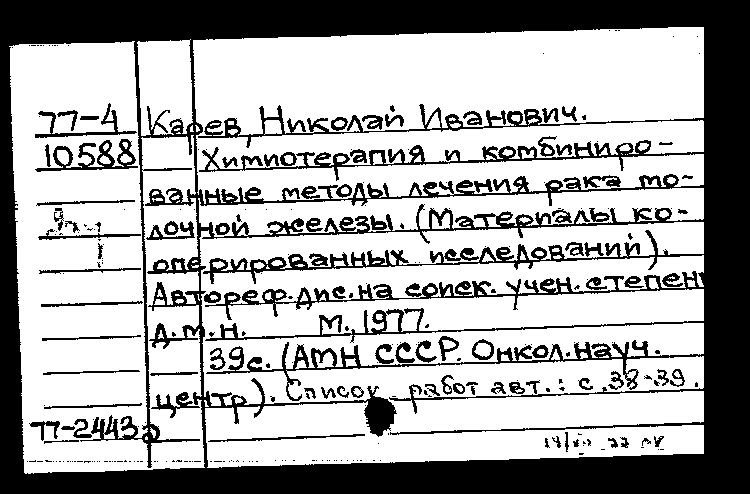 77-4 Карев, Николай Иванович.
10588 Химиотерапия и комбиниро-
ванные методы лечения рака мо-
лочной железы. (Материалы ко-
оперированных исследований).
Автореф. дис. на соиск. учен. степени
д.м.н. М., 1977.
39с. (АМН СССР. Онкол. науч.
центр). Список работ авт.: с. 38-39.
77-2443а